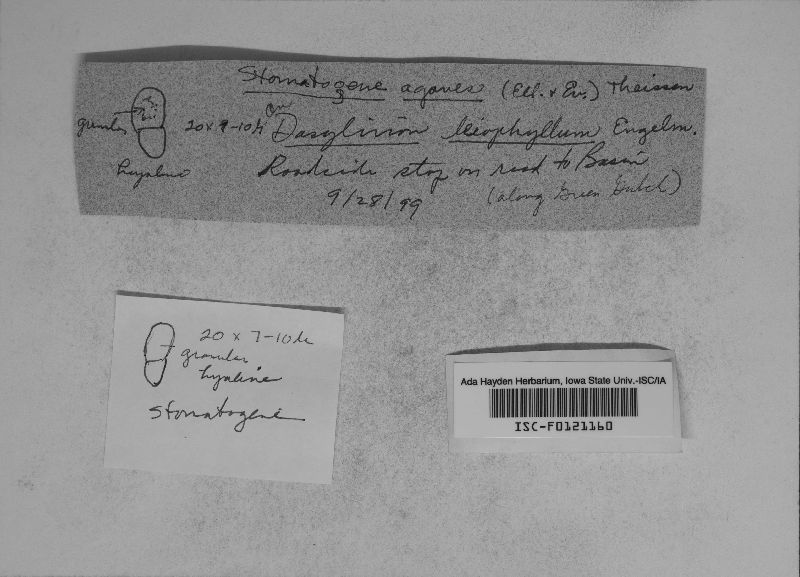 Stomatogene agaves (Ell. & Ev.) Theissen
granular
20 x 7-10µ on Dasylirion leiophyllum Engelm.
hyaline
Roadside stop on road to Basin
9/28/99 (along Green Gulch)
20 x 7-10µ
granular
hyaline
Stomatogene
Ada Hayden Herbarium, Iowa State Univ.-ISC/IA
ISC-F0121160